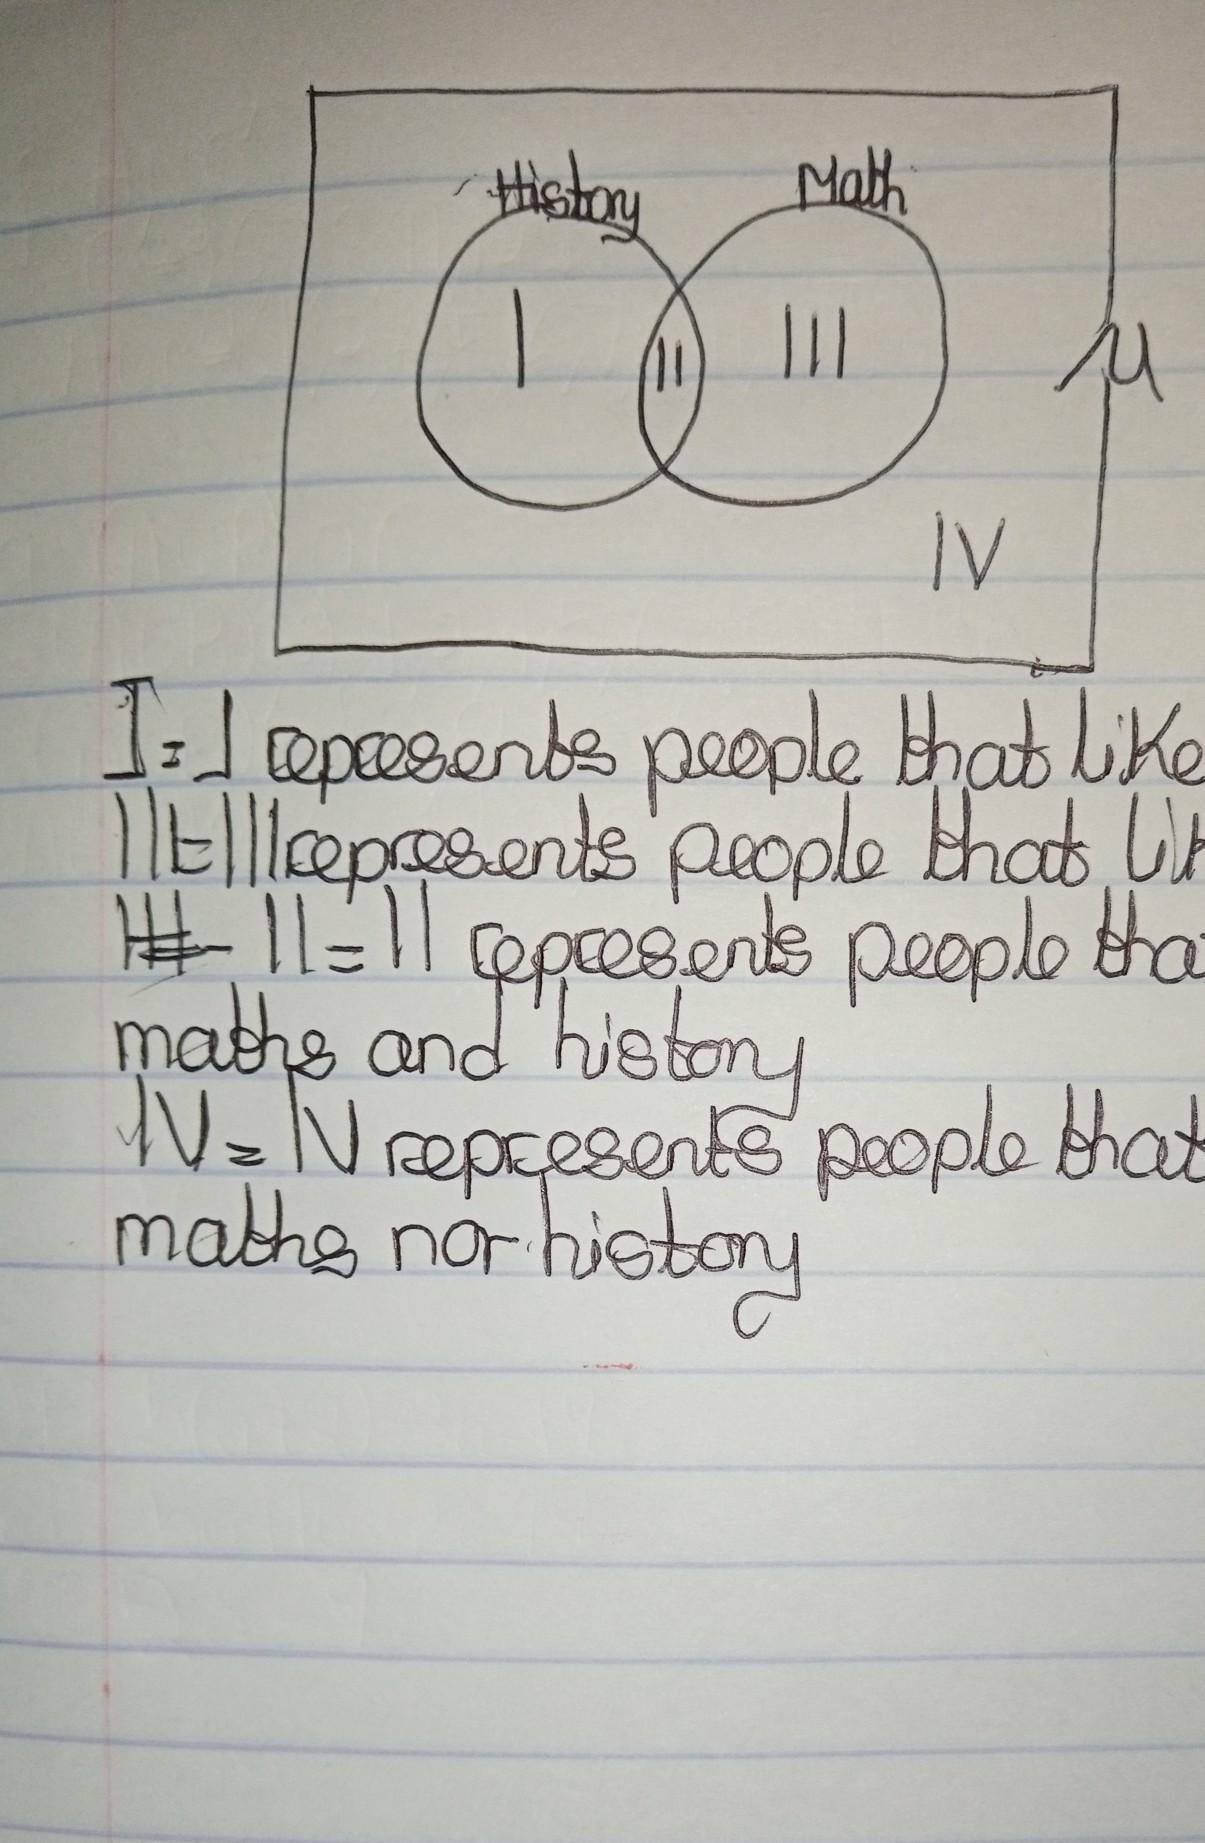 History Math
I II III μ
IV
I = I represents people that like
III = III represents people that
II = II represents people
maths and history
IV = IV represents people that
maths nor history